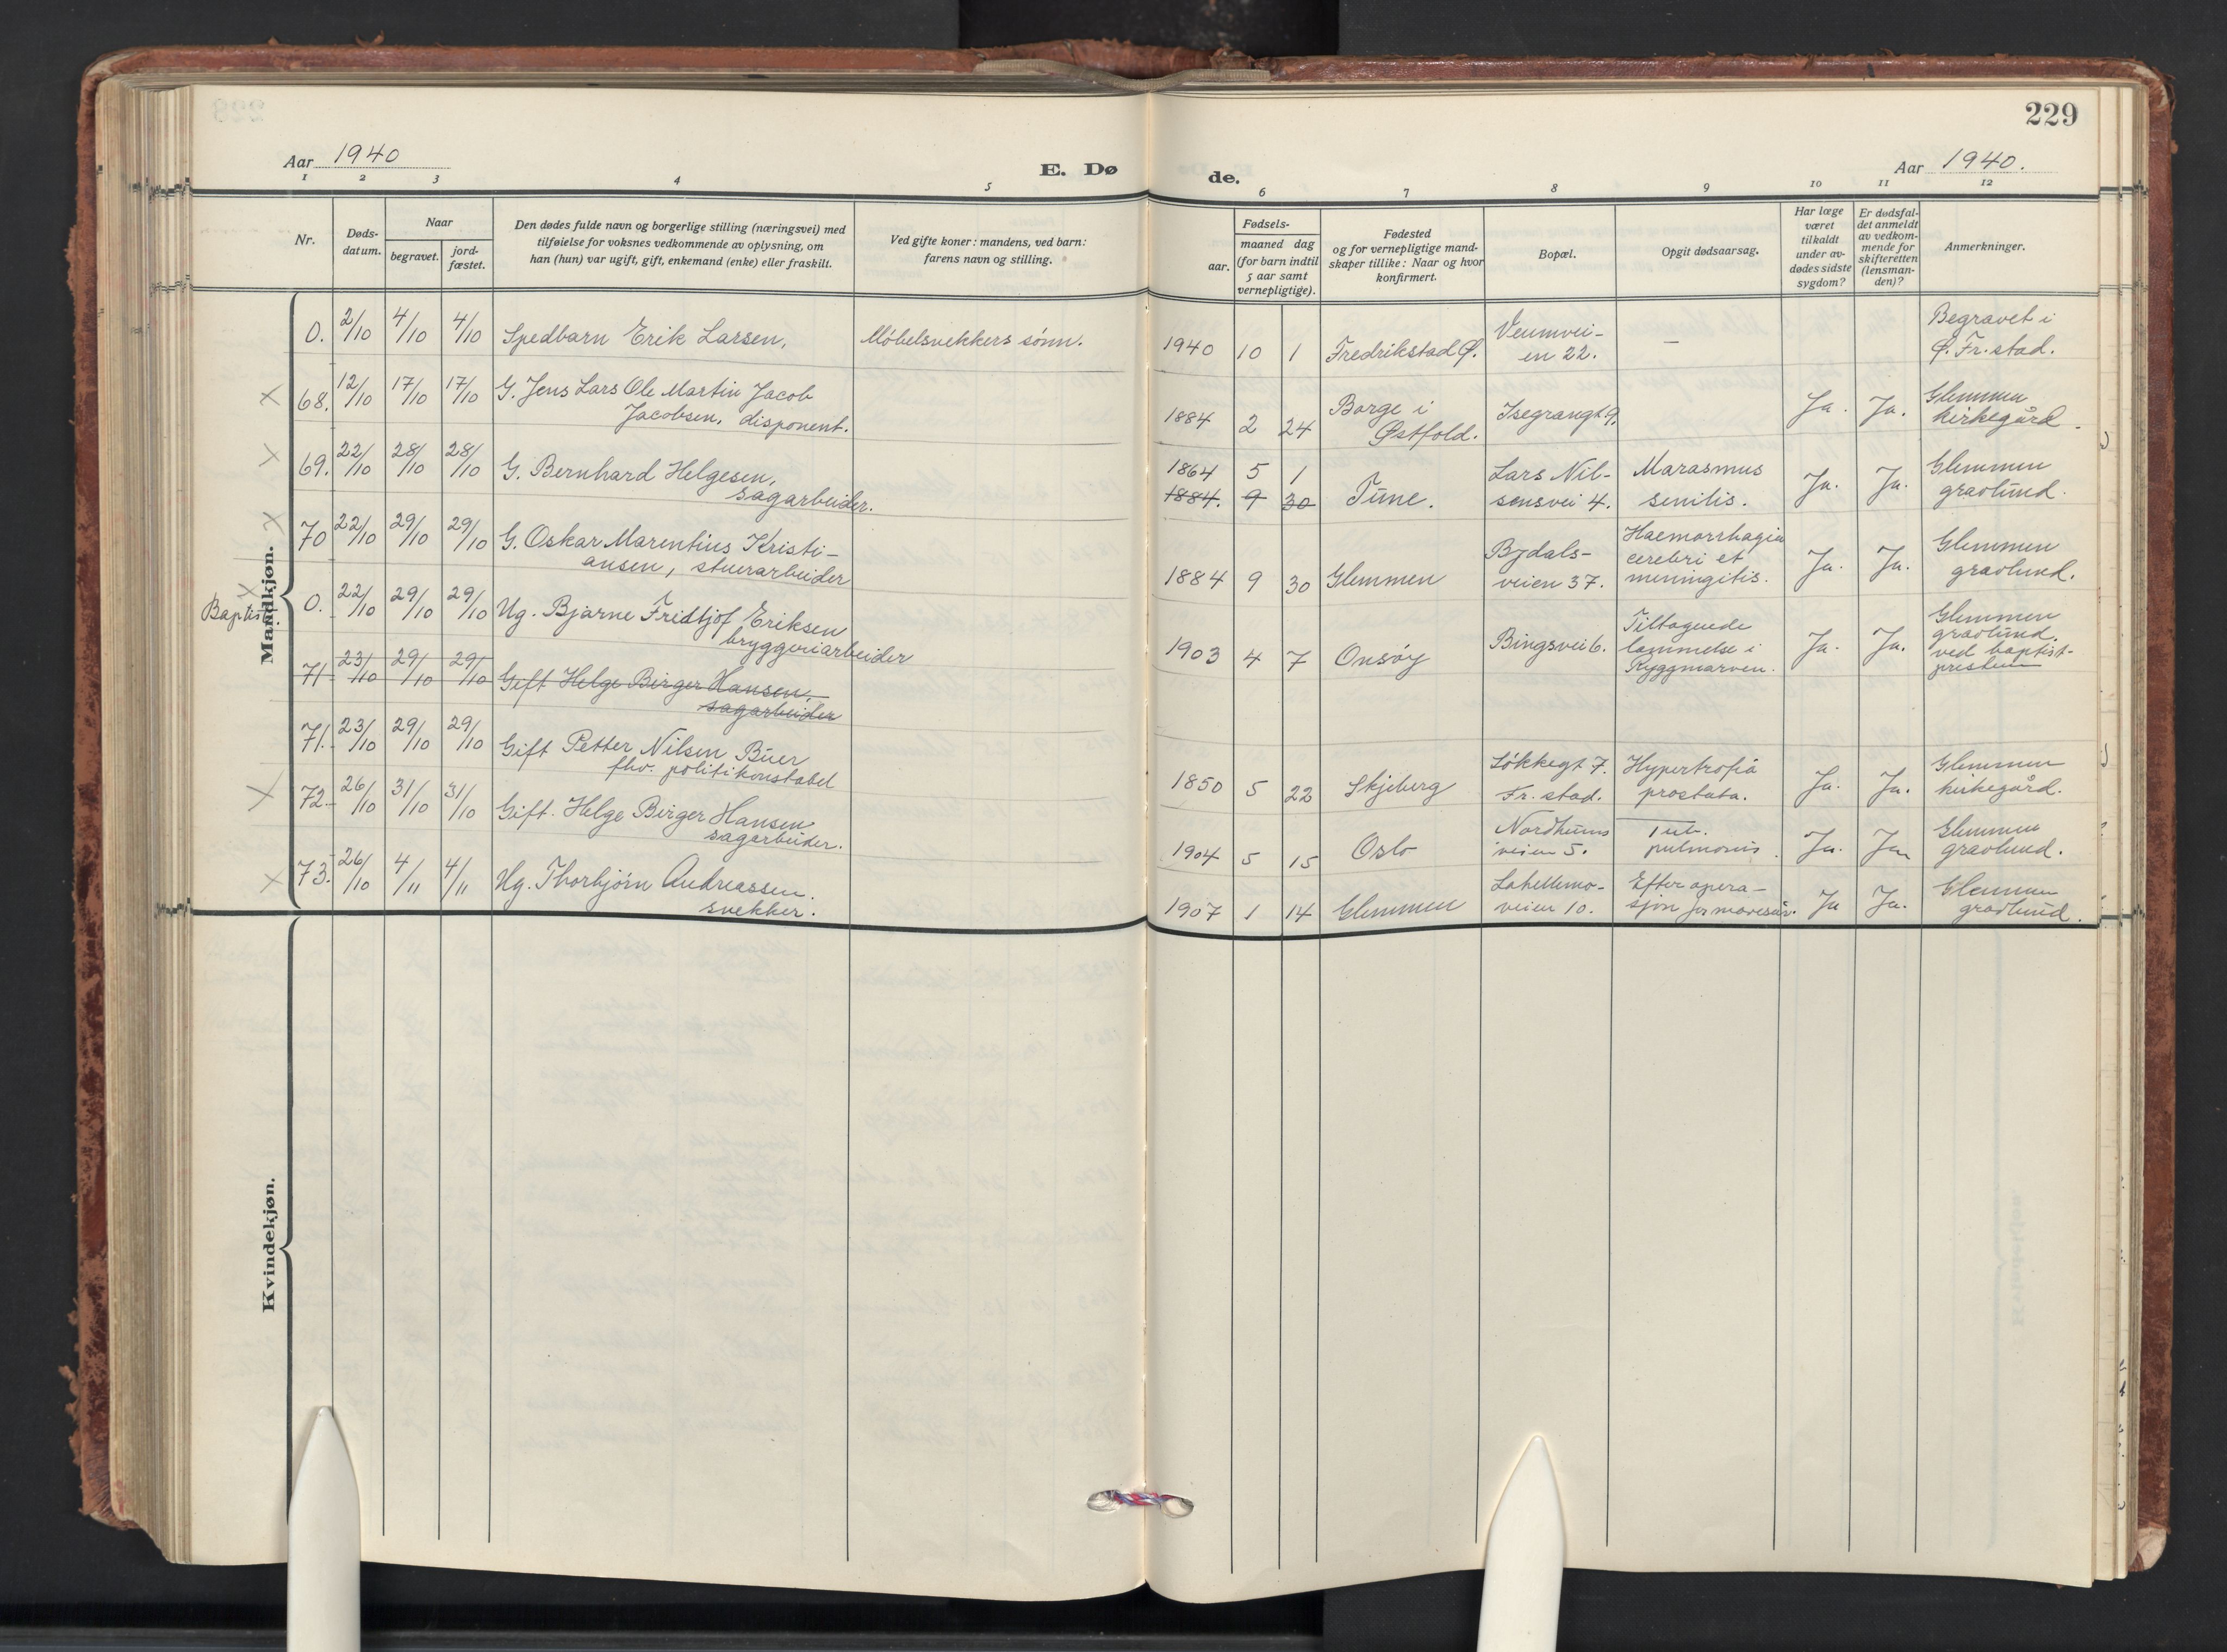 229
Aar 1940
E. Dø
de.
Aar 1940.
1 2 3 4 5 6 7 8 9 10 11 12
Nr.
Døds-
datum.
Naar
begravet.
jord-
fæstet.
Den dødes fulde navn og borgerlige stilling (næringsvei) med
tilføielse for voksnes vedkommende av oplysning, om
han (hun) var ugift, gift, enkemand (enke) eller fraskilt.
Ved gifte koner: mandens, ved barn:
farens navn og stilling.
Fødsels-
aar.
maaned dag
(for barn indtil
5 aar samt
vernepligtige).
Fødested
og for vernepligtige mand-
skaper tillike: Naar og hvor
konfirmert.
Bopæl.
Opgit dødsaarsag.
Har læge
været
tilkaldt
under av-
dødes sidste
sygdom?
Er dødsfal-
det anmeldt
av vedkom-
mende for
skifteretten
(lensman-
den)?
Anmerkninger.
Mandkjøn.
0. 2/10 4/10 4/10 Spedbarn Erik Larsen, Møbelsnekkers sønn. 1940 10 1 Fredrikstad Ø.
Veumvei-
en 22.
—
Begravet i
Ø. Fr.stad.
X 68. 12/10 17/10 17/10 G. Jens Lars Ole Martin Jacob
Jacobsen, disponent.
1884 2 24 Borge i
Østfold.
Isegrangt. 9. Ja. Ja. Glemmen
kirkegård.
X 69. 22/10 28/10 28/10 G. Bernhard Helgesen,
sagarbeider.
1864 5 1
1884. 9 30 Tune.
Lars Nil-
sensvei 4.
Marasmus
senilis.
Ja. Ja. Glemmen
gravlund.
X 70 22/10 29/10 29/10 G. Oskar Marentius Kristi-
ansen, stuerarbeider
1884 9 30 Glemmen
Bydals-
veien 37.
Haemorrhagia
cerebri et
meningitis.
Ja. Ja. Glemmen
gravlund.
X
Baptist. 0. 22/10 29/10 29/10 Ug. Bjarne Fridtjof Eriksen
bryggeriarbeider
1903 4 7 Onsøy
Bingsvei 6.
Tiltagende
lammelse i
Ryggmarven.
Ja. Ja. Glemmen
gravlund.
ved baptist-
presten
71 23/10 29/10 29/10 Gift Helge Birger Hansen,
sagarbeider
71. 23/10 29/10 29/10 Gift Petter Nilsen Buer
fhv. politikonstabel
1850 5 22 Skjeberg
Løkkegt. 7.
Fr. stad.
Hypertrofia
prostata.
Ja. Ja. Glemmen
kirkegård.
X 72. 26/10 31/10 31/10 Gift. Helge Birger Hansen
sagarbeider.
1904 5 15 Oslo
Nordheims
veien 5.
Tub.
pulmonis.
Ja. Ja Glemmen
gravlund.
X 73. 26/10 4/11 4/11 Ug. Thorbjørn Andreassen.
snekker.
1907 1 14 Glemmen
Lahellemo-
veien 10.
Efter opera-
sjon for mavesår.
Ja Ja. Glemmen
gravlund.
Kvindekjøn.